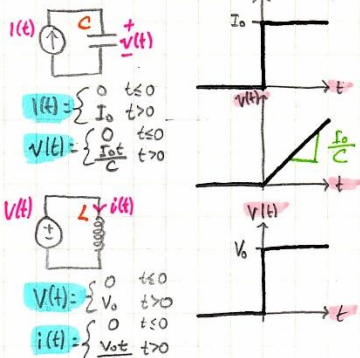 I(t) C + v(t) -
I(t) = { 0 t≤0
I₀ t>0
v(t) = { 0 t≤0
I₀t/C t>0
I₀
t
v(t)
I₀/C
t
V(t) + - L i(t)
V(t) = { 0 t≤0
V₀ t>0
i(t) = { 0 t≤0
V₀t t>0
V(t)
V₀
t